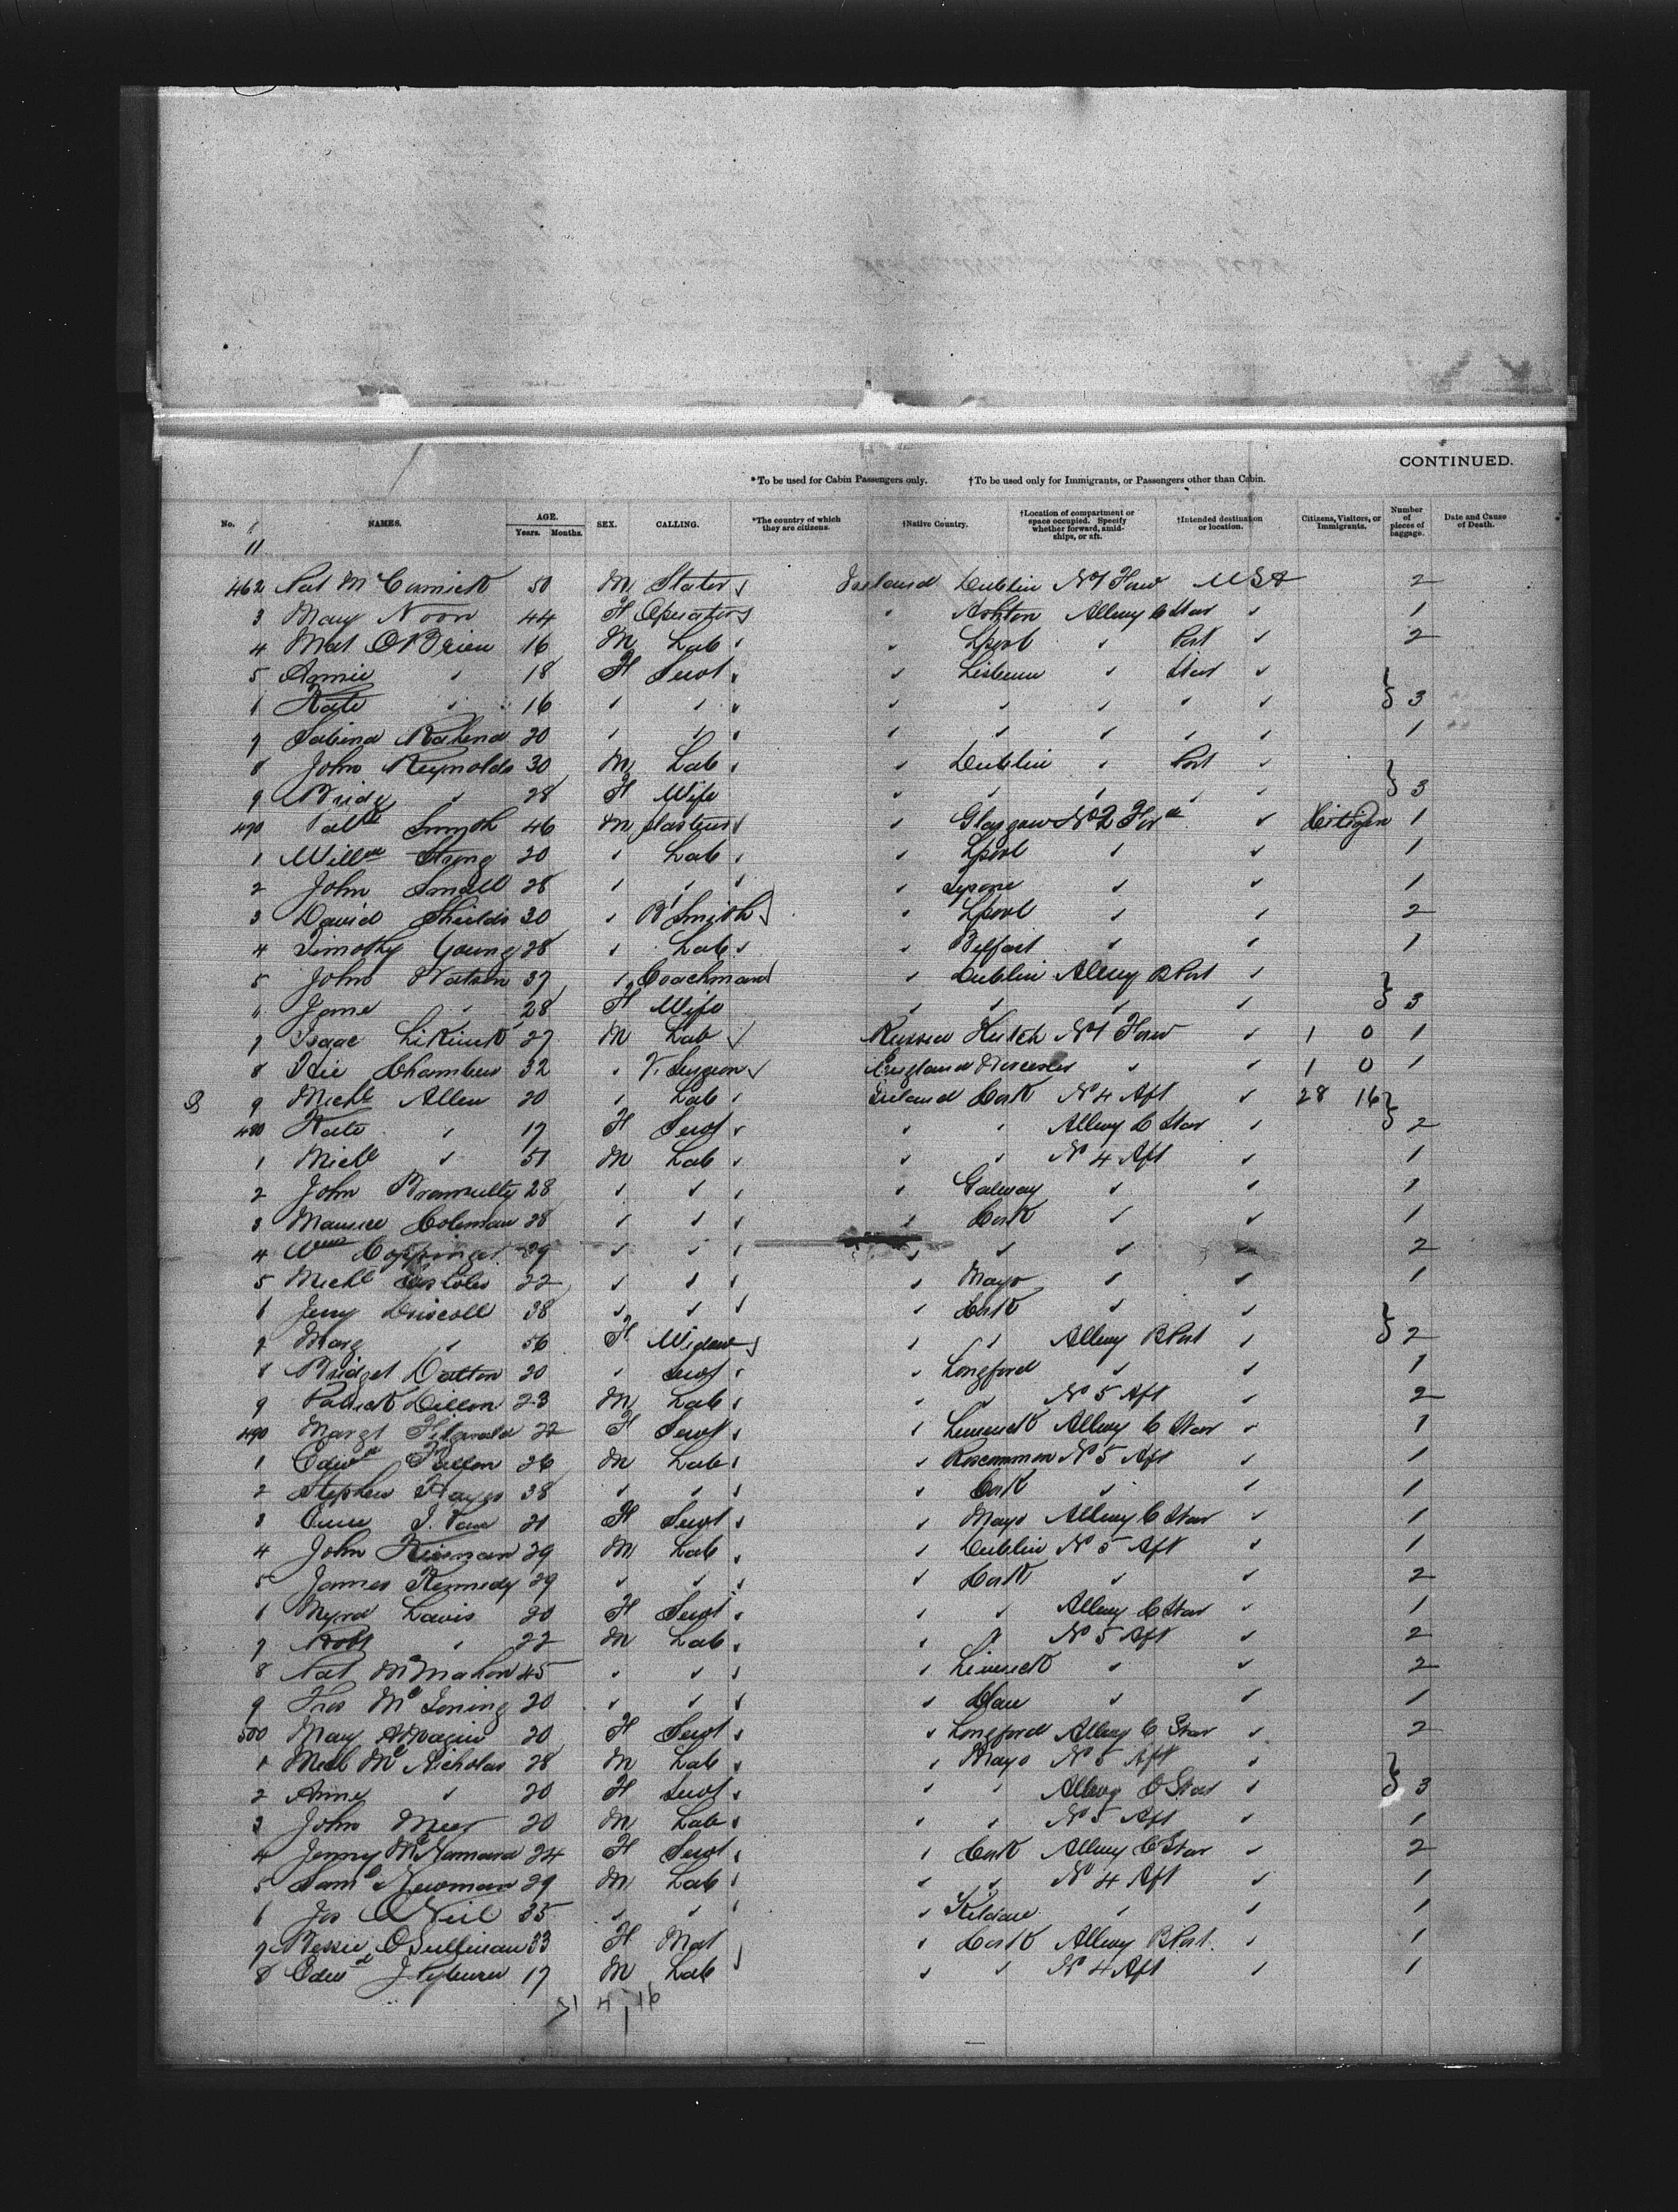 CONTINUED.
*To be used for Cabin Passengers only. †To be used only for Immigrants, or Passengers other than Cabin.
No. NAMES. AGE. Years. Months. SEX. CALLING. *The country of which they are citizens. †Native Country. †Location of compartment or space occupied. Specify whether forward, amidships, or aft. †Intended destination or location. Citizens, Visitors, or Immigrants. Number of pieces of baggage. Date and Cause of Death.
11
462 Pat McCormick 50 M Ireland Dublin No 1 Forw USA 2
3 Mary Noon 44 F Operator " Ashton Allway C Star " 1
4 Mat O'Brien 16 M Lab " Lpool " Port " 2
5 Annie " 18 F Servt " " Star "
6 Kate " 16 " " " " " " " } 3
7 Sabina 20 " " " " " " " 1
8 John Reynolds 30 M Lab " Dublin " Port "
9 Bridg " 28 F Wife " " " " " } 3
470 Smyth 46 M " Glasgow No 2 Forwd " Citizen 1
1 Willm Strong 20 " Lab " Lpool " " 1
2 John Small 28 " " " Tyrone " " 1
3 David Shields 30 " B'Smith " Lpool " " 2
4 Timothy Young 28 " Lab " Belfast " " 1
5 John Watson 37 " Coachman " Dublin Allway B Port "
6 Jane " 28 F Wife " " " " } 3
7 Isaac 27 M Lab Russia No 1 Forw " 1 0 1
8 Chambers 32 " V. Surgeon England Worcester " " 1 0 1
9 Michl Allen 20 " Lab Ireland Cork No 4 Aft " 28 16
480 Kate " 17 F Servt " " Allway C Star " } 2
1 Michl " 51 M Lab " " No 4 Aft " 1
2 John 28 " " " Galway " " 1
3 Maurice Coleman 28 " " " Cork " " 1
4 Wm Coppinger 29 " " " " " " 2
5 Michl 22 " " " Mayo " " 1
6 Jerry Driscoll 38 " " " Cork " "
7 Marg " 56 F Widow " " Allway B Port " } 2
8 Bridget Dalton 20 " Servt " Longford " " 1
9 Patrick Dillon 23 M Lab " " No 5 Aft " 2
490 Margt Fitzgerald 22 F Servt " Limerick Allway C Star " 1
1 Edwd Fallon 26 M Lab " Roscommon No 5 Aft " 1
2 Stephen Hayes 38 " " " Cork " " 1
3 21 F Servt " Mayo Allway C Star " 1
4 John 29 M Lab " Dublin No 5 Aft " 1
5 James Kennedy 29 " " " Cork " " 2
6 20 F Servt " " Allway C Star " 1
7 Robt " 22 M Lab " " No 5 Aft " 2
8 Pat McMahon 45 " " " Limerick " " 2
9 Thos 20 " " " Clare " " 1
500 Mary 20 F Servt " Longford Allway C Star " 2
1 Michl McNicholas 28 M Lab " Mayo No 5 Aft "
2 Anne " 20 F Servt " " Allway C Star " } 3
3 John 20 M Lab " " No 5 Aft " 1
4 Jenny McNamara 24 F Servt " Cork Allway C Star " 2
5 Saml Newman 29 M Lab " " No 4 Aft " 1
6 Jas O'Neil 35 " " " Kildare " " 1
7 Bessie O'Sullivan 33 F Mat " Cork Allway B Port " 1
8 Edwd J 17 M Lab " " No 4 Aft " 1